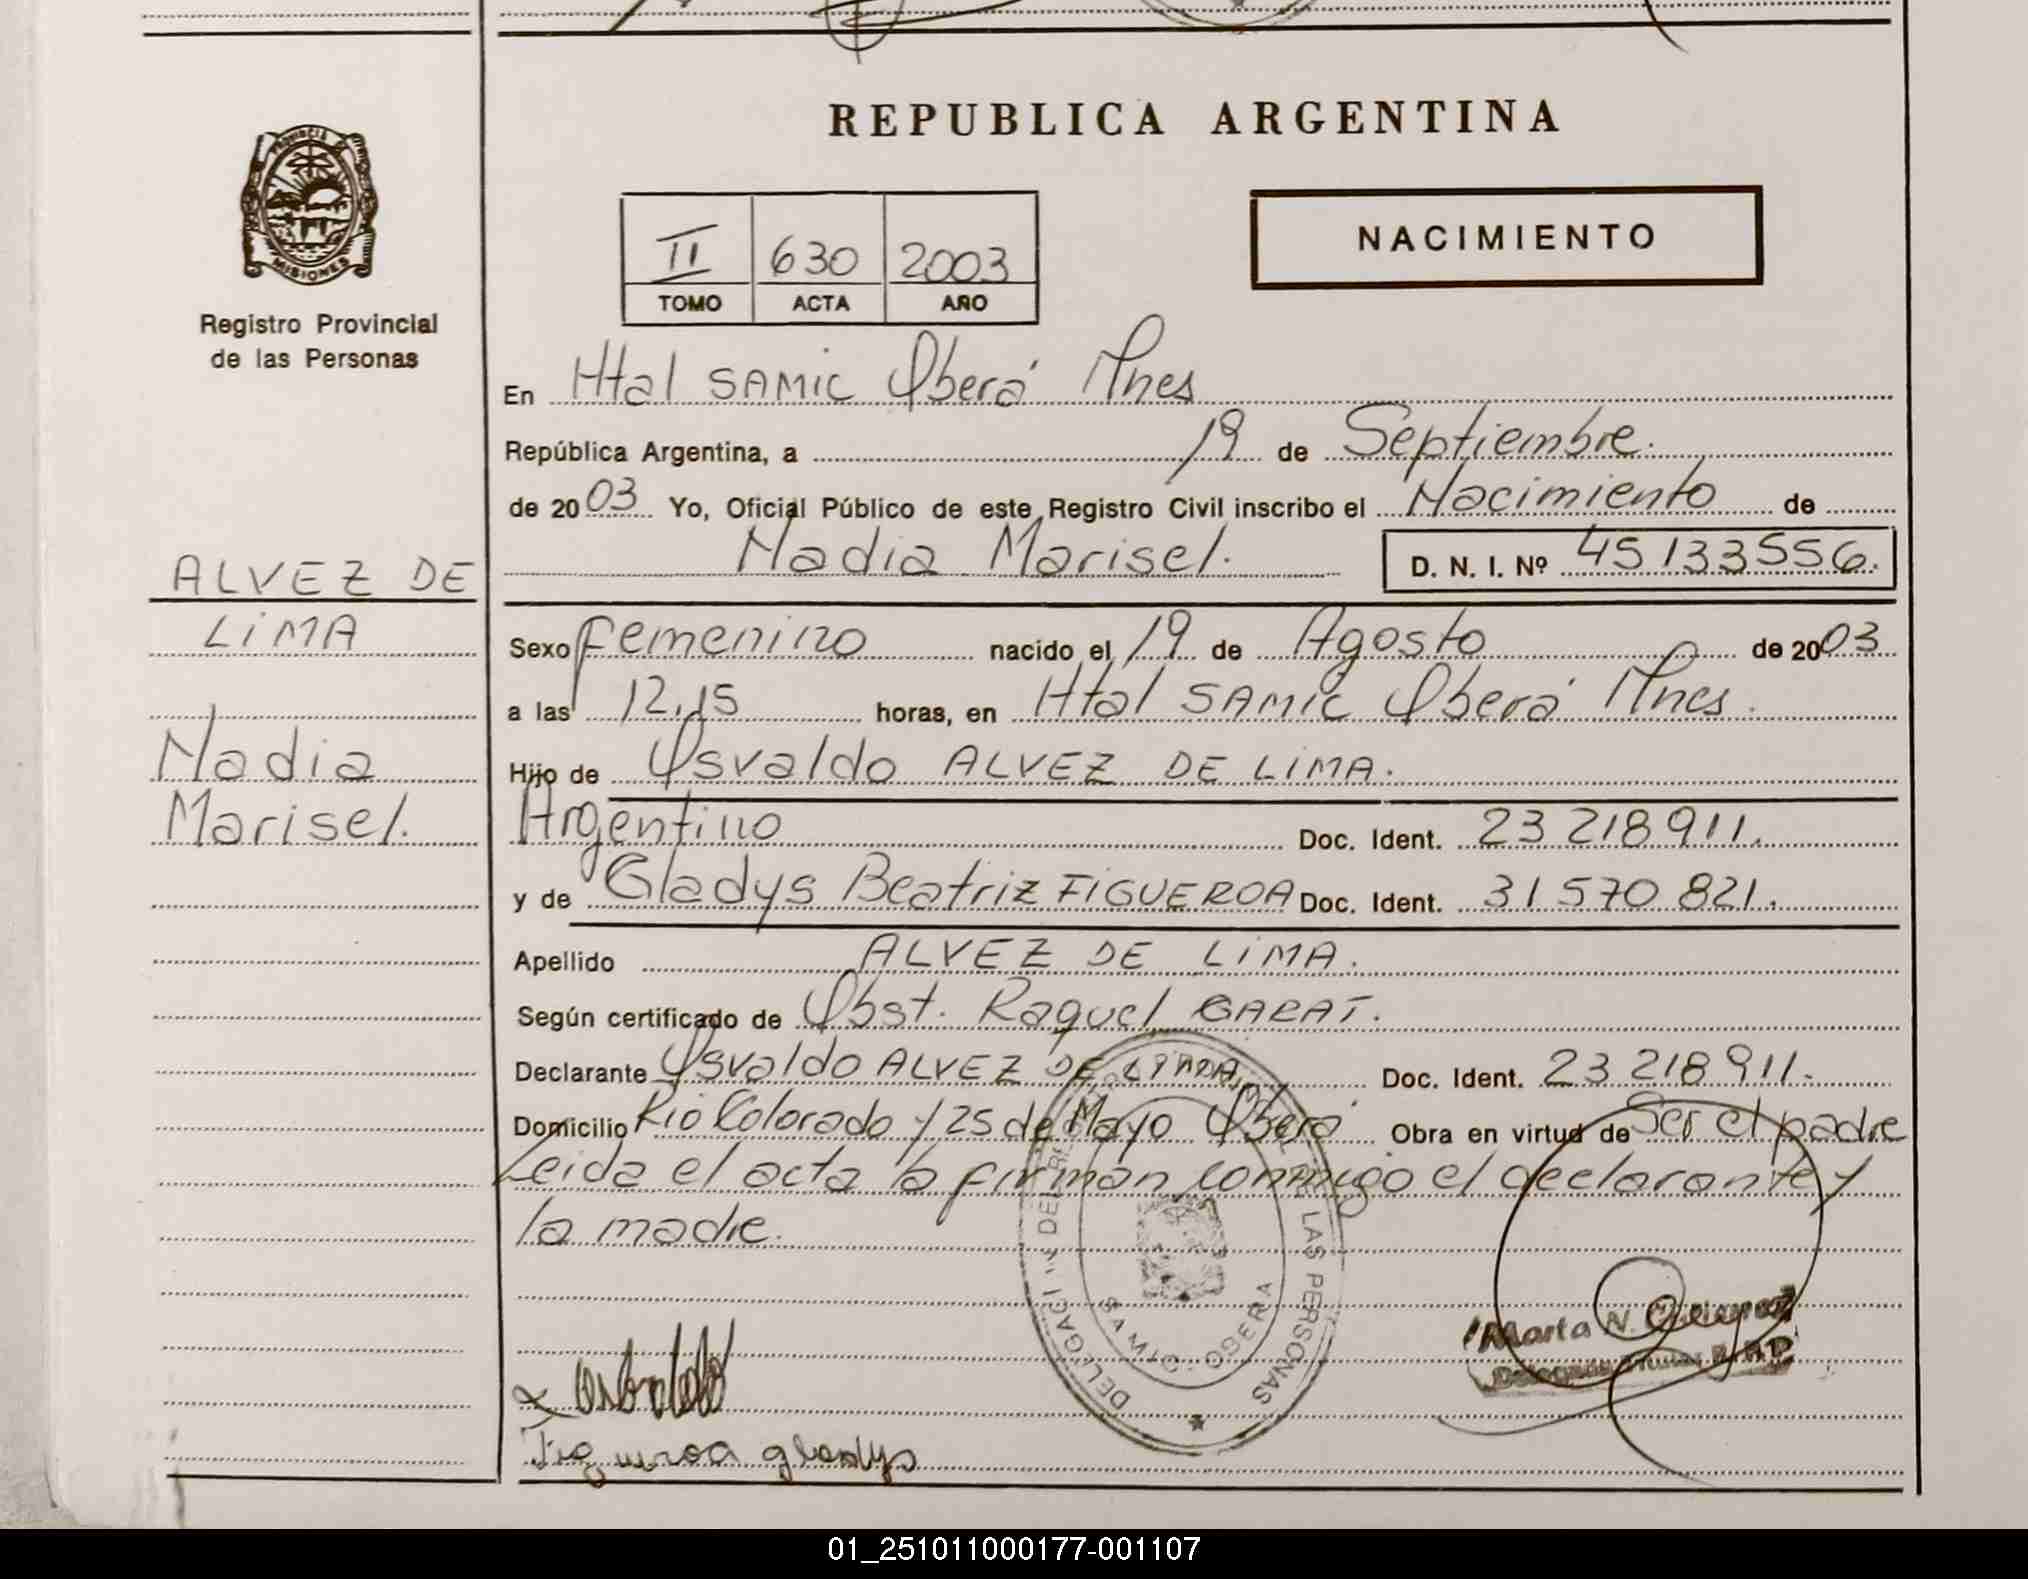 REPUBLICA ARGENTINA
PROVINCIA DE
MISIONES
Registro Provincial
de las Personas
II 630 2003
TOMO ACTA AÑO
NACIMIENTO
En Htal SAMIC Oberá Mnes
República Argentina, a 19 de Septiembre.
de 2003 Yo, Oficial Público de este Registro Civil inscribo el Nacimiento de
Nadia Marisel. D. N. I. Nº 45 133 556.
ALVEZ DE
LiMA
Nadia
Marisel.
Sexo Femenino nacido el 19 de Agosto de 2003
a las 12,15 horas, en Htal SAMIC Oberá Mnes.
Hijo de Osvaldo ALVEZ DE LiMA.
Argentino Doc. Ident. 23 218 911.
y de Gladys Beatriz FIGUEROA Doc. Ident. 31 570 821.
Apellido ALVEZ DE LiMA.
Según certificado de Obst. Raquel GARAT.
Declarante Osvaldo ALVEZ DE LIMA Doc. Ident. 23 218 911.
Domicilio Rio Colorado y 25 de Mayo Oberá Obra en virtud de Ser el padre
Leida el acta la firman conmigo el declarante y
la madre.
DE LAS PERSONAS
OBERA
Marta N.
Figueroa gladys
01_251011000177-001107